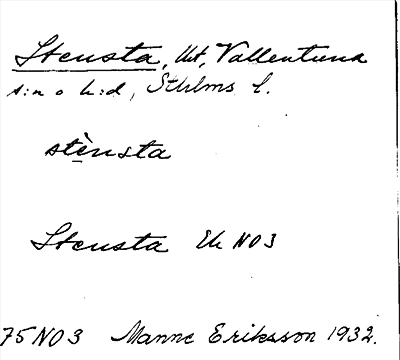 Stensta, Ut, Vallentuna
s:n o h:d, Sthlms l.
stènsta
Stensta Ek NO3
75NO3 Manne Eriksson 1932.